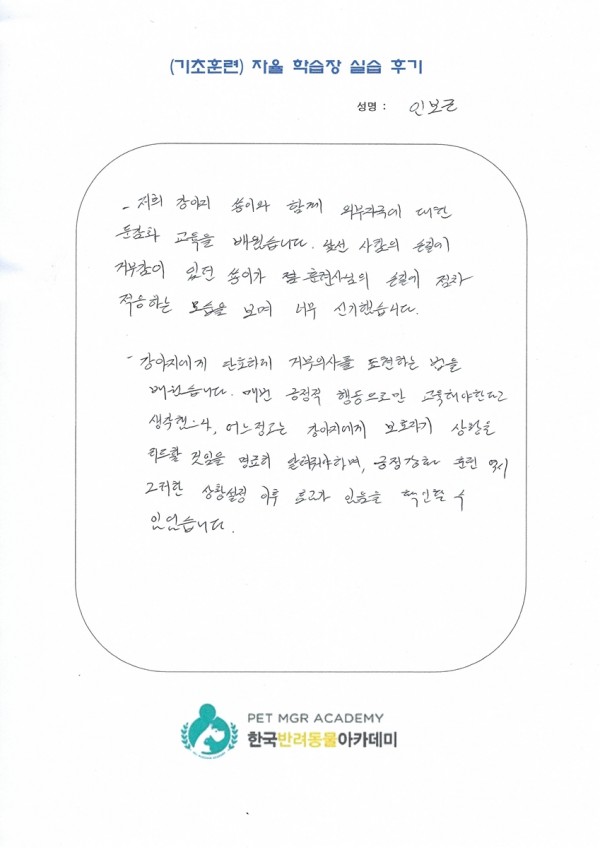 (기초훈련) 자율 학습장 실습 후기
성명 : 인보근
- 저희 강아지 쏭이와 함께 외부자극에 대한
둔감화 교육을 배웠습니다. 낯선 사람의 손길에
거부감이 있던 쏭이가 훈련사님의 손길에 점차
적응하는 모습을 보여 너무 신기했습니다.
- 강아지에게 단호하게 거부의사를 표현하는 법을
배웠습니다. 매번 긍정적 행동으로만 교육해야한다고
생각했으나, 어느정도는 강아지에게 보호자가 상황을
리드할 것임을 명료히 알려줘야하며, 긍정강화 훈련 역시
그러한 상황설정 이후 효과가 있음을 확인할 수
있었습니다.
PET MGR ACADEMY
한국반려동물아카데미